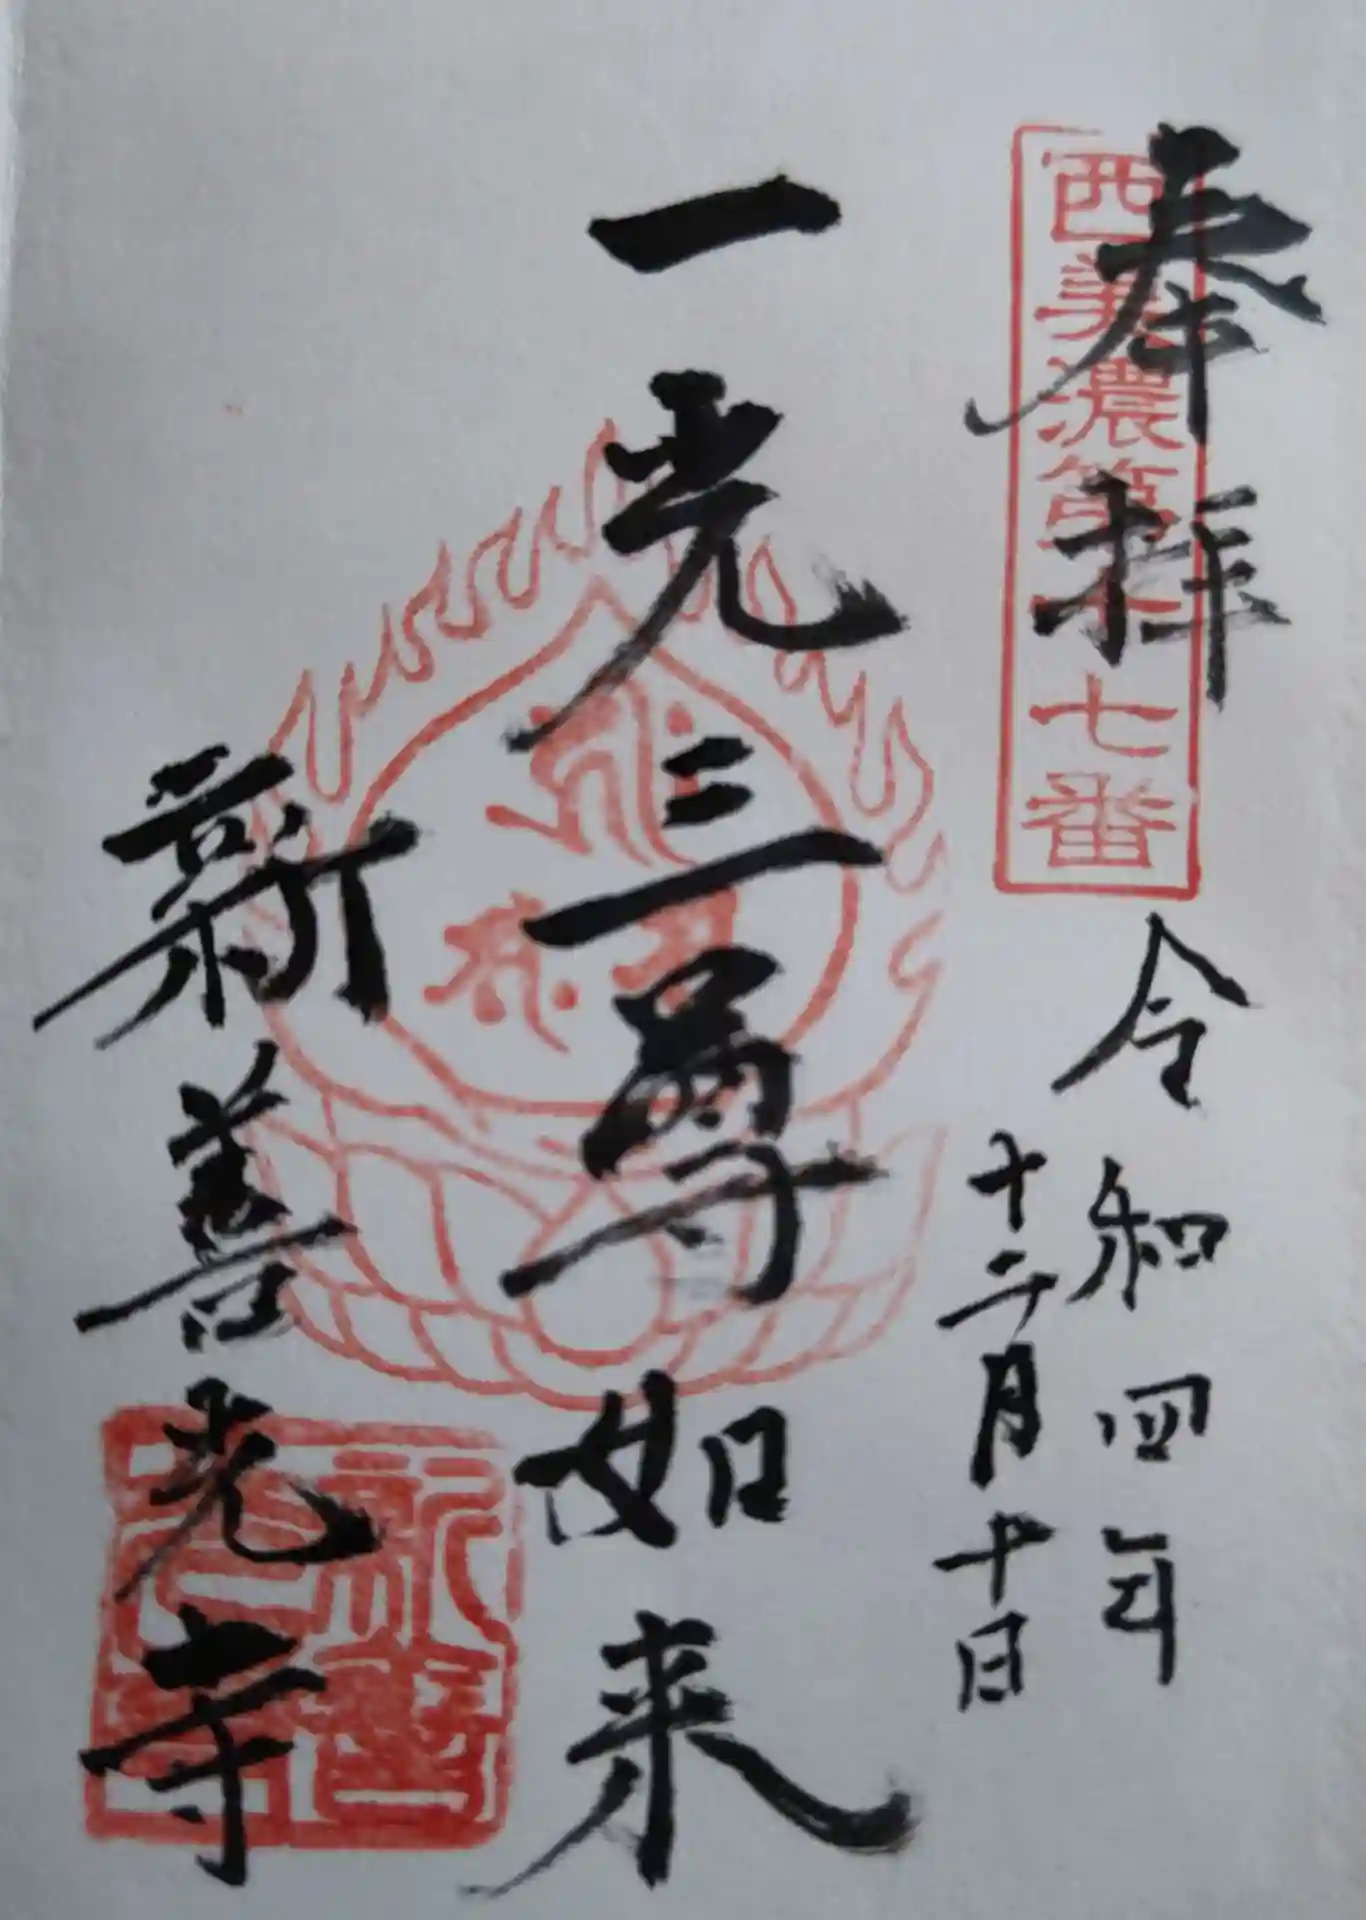 奉拝
西美濃第十七番
令和四年
十二月十日
一光三尊如来
新善光寺
新善光寺